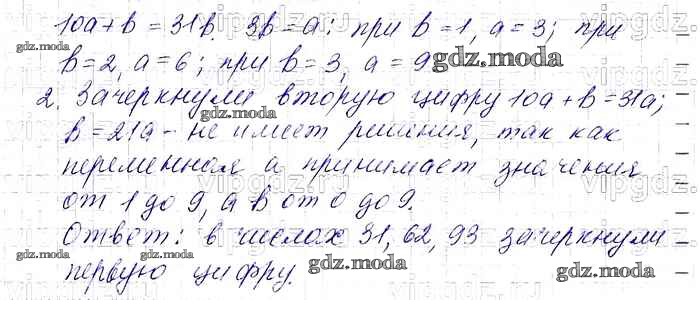 10a+b = 31b. 3b=a; при b=1, a=3; при
b=2, a=6; при b=3, a=9.
2. Зачеркнули вторую цифру 10a+b=31a;
b=21a - не имеет решения, так как
переменная a принимает значения
от 1 до 9, а b от 0 до 9.
Ответ: в числах 31, 62, 93 зачеркнули
первую цифру.
gdz.moda
gdz.moda
gdz.moda
gdz.moda
gdz.moda
gdz.moda
gdz.moda
vipgdz.ru